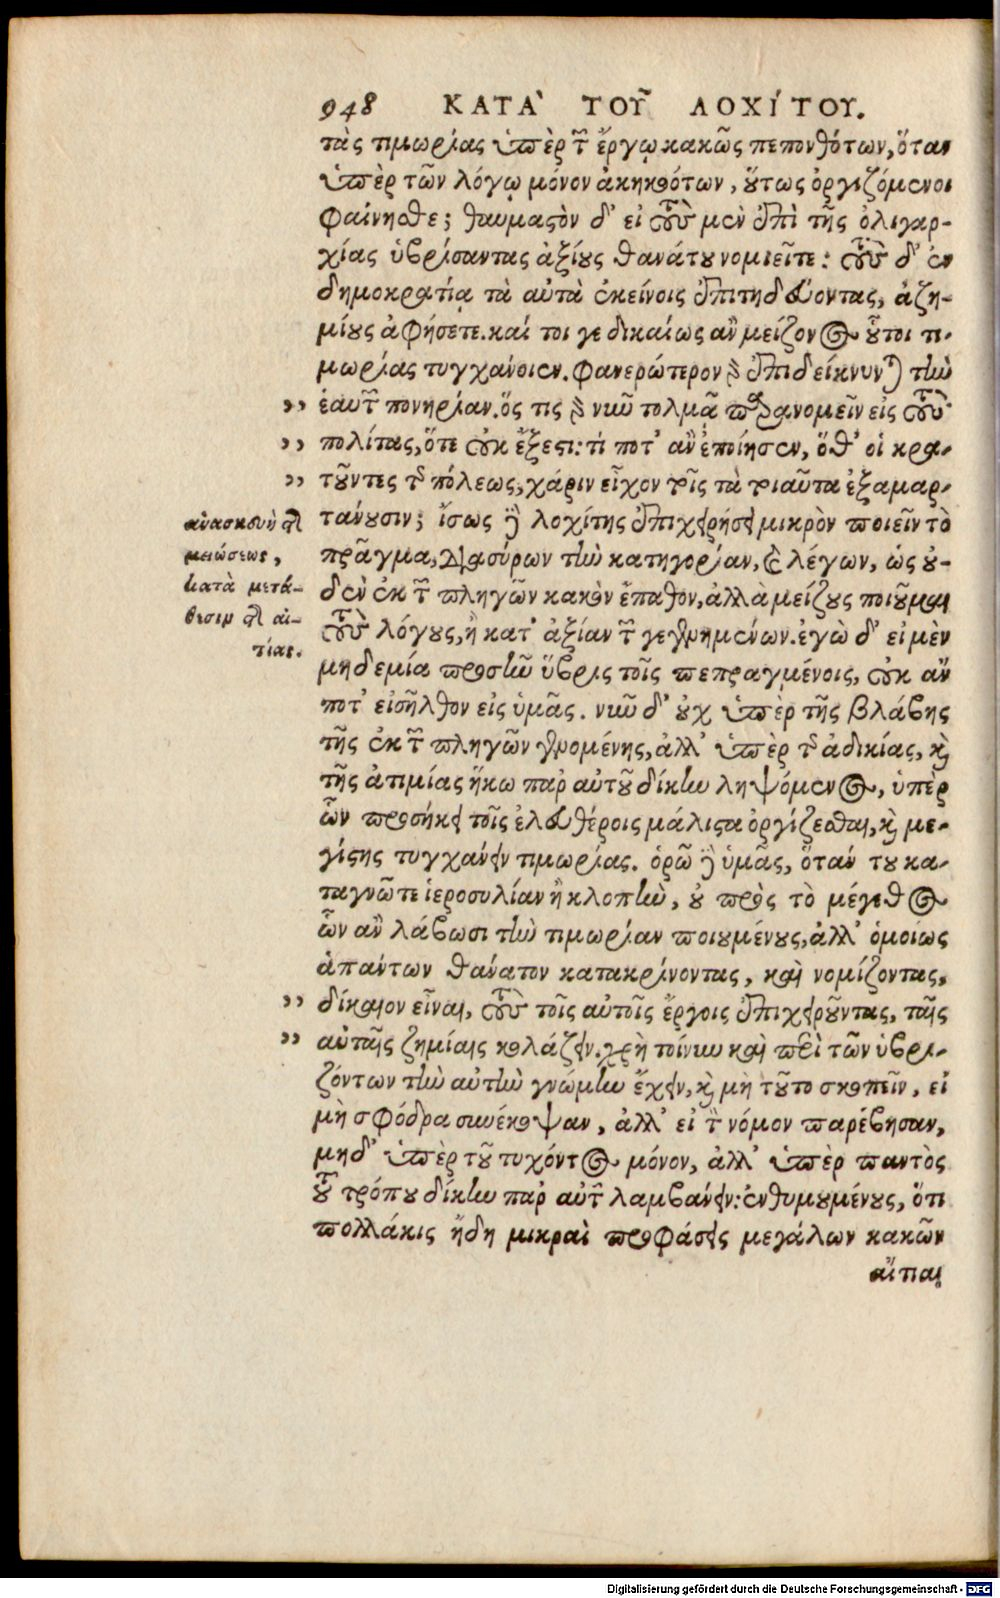 948 ΚΑΤᾺ ΤΟΥ͂ ΛΟΧΊΤΟΥ.
τὰς τιμωρίας ὑπὲρ τῶν ἔργῳ κακῶς πεπονθότων, ὅταν
ὑπὲρ τῶν λόγῳ μόνον ἀκηκοότων, οὕτως ὀργιζόμενοι
φαίνησθε; θαυμαστὸν δ' εἰ τοὺς μὲν ἐπὶ τῆς ὀλιγαρ-
χίας ὑβρίσαντας ἀξίους θανάτου νομιεῖτε: τοὺς δ' ἐν
δημοκρατίᾳ τὰ αὐτὰ ἐκείνοις ἐπιτηδεύοντας, ἀζη-
μίους ἀφήσετε. καί τοι γε δικαίως ἂν μείζονος οὗτοι τι-
μωρίας τυγχάνοιεν. φανερώτερον γὰρ ἐπιδείκνυνται τὴν
,, ἑαυτῶν πονηρίαν. ὅς τις γὰρ νῦν τολμᾷ παρανομεῖν εἰς τοὺς
,, πολίτας, ὅτε οὐκ ἔξεστι: τί ποτ' ἂν ἐποίησεν, ὅθ' οἱ κρα-
,, τοῦντες τῆς πόλεως, χάριν εἶχον τοῖς τὰ τοιαῦτα ἐξαμαρ-
τάνουσιν; ἴσως οὖν λοχίτης ἐπιχειρήσει μικρὸν ποιεῖν τὸ
πρᾶγμα, διασύρων τὴν κατηγορίαν, καὶ λέγων, ὡς οὐ-
δὲν ἐκ τῶν πληγῶν κακὸν ἔπαθον, ἀλλὰ μείζους ποιοῦμαι
τοὺς λόγους, ἢ κατ' ἀξίαν τῶν γεγενημένων. ἐγὼ δ' εἰ μὲν
μηδεμία προσῆν ὕβρις τοῖς πεπραγμένοις, οὐκ ἄν
ποτ' εἰσῆλθον εἰς ὑμᾶς. νῦν δ' οὐχ ὑπὲρ τῆς βλάβης
τῆς ἐκ τῶν πληγῶν γενομένης, ἀλλ' ὑπὲρ τῆς ἀδικίας, καὶ
τῆς ἀτιμίας ἥκω παρ' αὐτοῦ δίκην ληψόμενος, ὑπὲρ
ὧν προσήκει τοῖς ἐλευθέροις μάλιστα ὀργίζεσθαι, καὶ με-
γίστης τυγχάνειν τιμωρίας. ὁρῶ οὖν ὑμᾶς, ὅταν του κα-
ταγνῶτε ἱεροσυλίαν ἢ κλοπὴν, οὐ πρὸς τὸ μέγεθος
ὧν ἂν λάβωσι τὴν τιμωρίαν ποιουμένους, ἀλλ' ὁμοίως
ἁπάντων θάνατον κατακρίνοντας, καὶ νομίζοντας,
,, δίκαιον εἶναι, τοὺς τοῖς αὐτοῖς ἔργοις ἐπιχειροῦντας, ταῖς
,, αὐταῖς ζημίαις κολάζειν. χρὴ τοίνυν καὶ περὶ τῶν ὑβρι-
ζόντων τὴν αὐτὴν γνώμην ἔχειν, καὶ μὴ τοῦτο σκοπεῖν, εἰ
μὴ σφόδρα συνέκοψαν, ἀλλ' εἰ τὸν νόμον παρέβησαν,
μηδ' ὑπὲρ τοῦ τυχόντος μόνον, ἀλλ' ὑπὲρ παντὸς
τοῦ τρόπου δίκην παρ' αὐτῶν λαμβάνειν: ἐνθυμουμένους, ὅτι
πολλάκις ἤδη μικραὶ προφάσεις μεγάλων κακῶν
αἴτιαι
ἀνασκευὴ τῆς
μειώσεως,
κατὰ μετά-
θεσιν τῆς αἰ-
τίας.
Digitalisierung gefördert durch die Deutsche Forschungsgemeinschaft - DFG